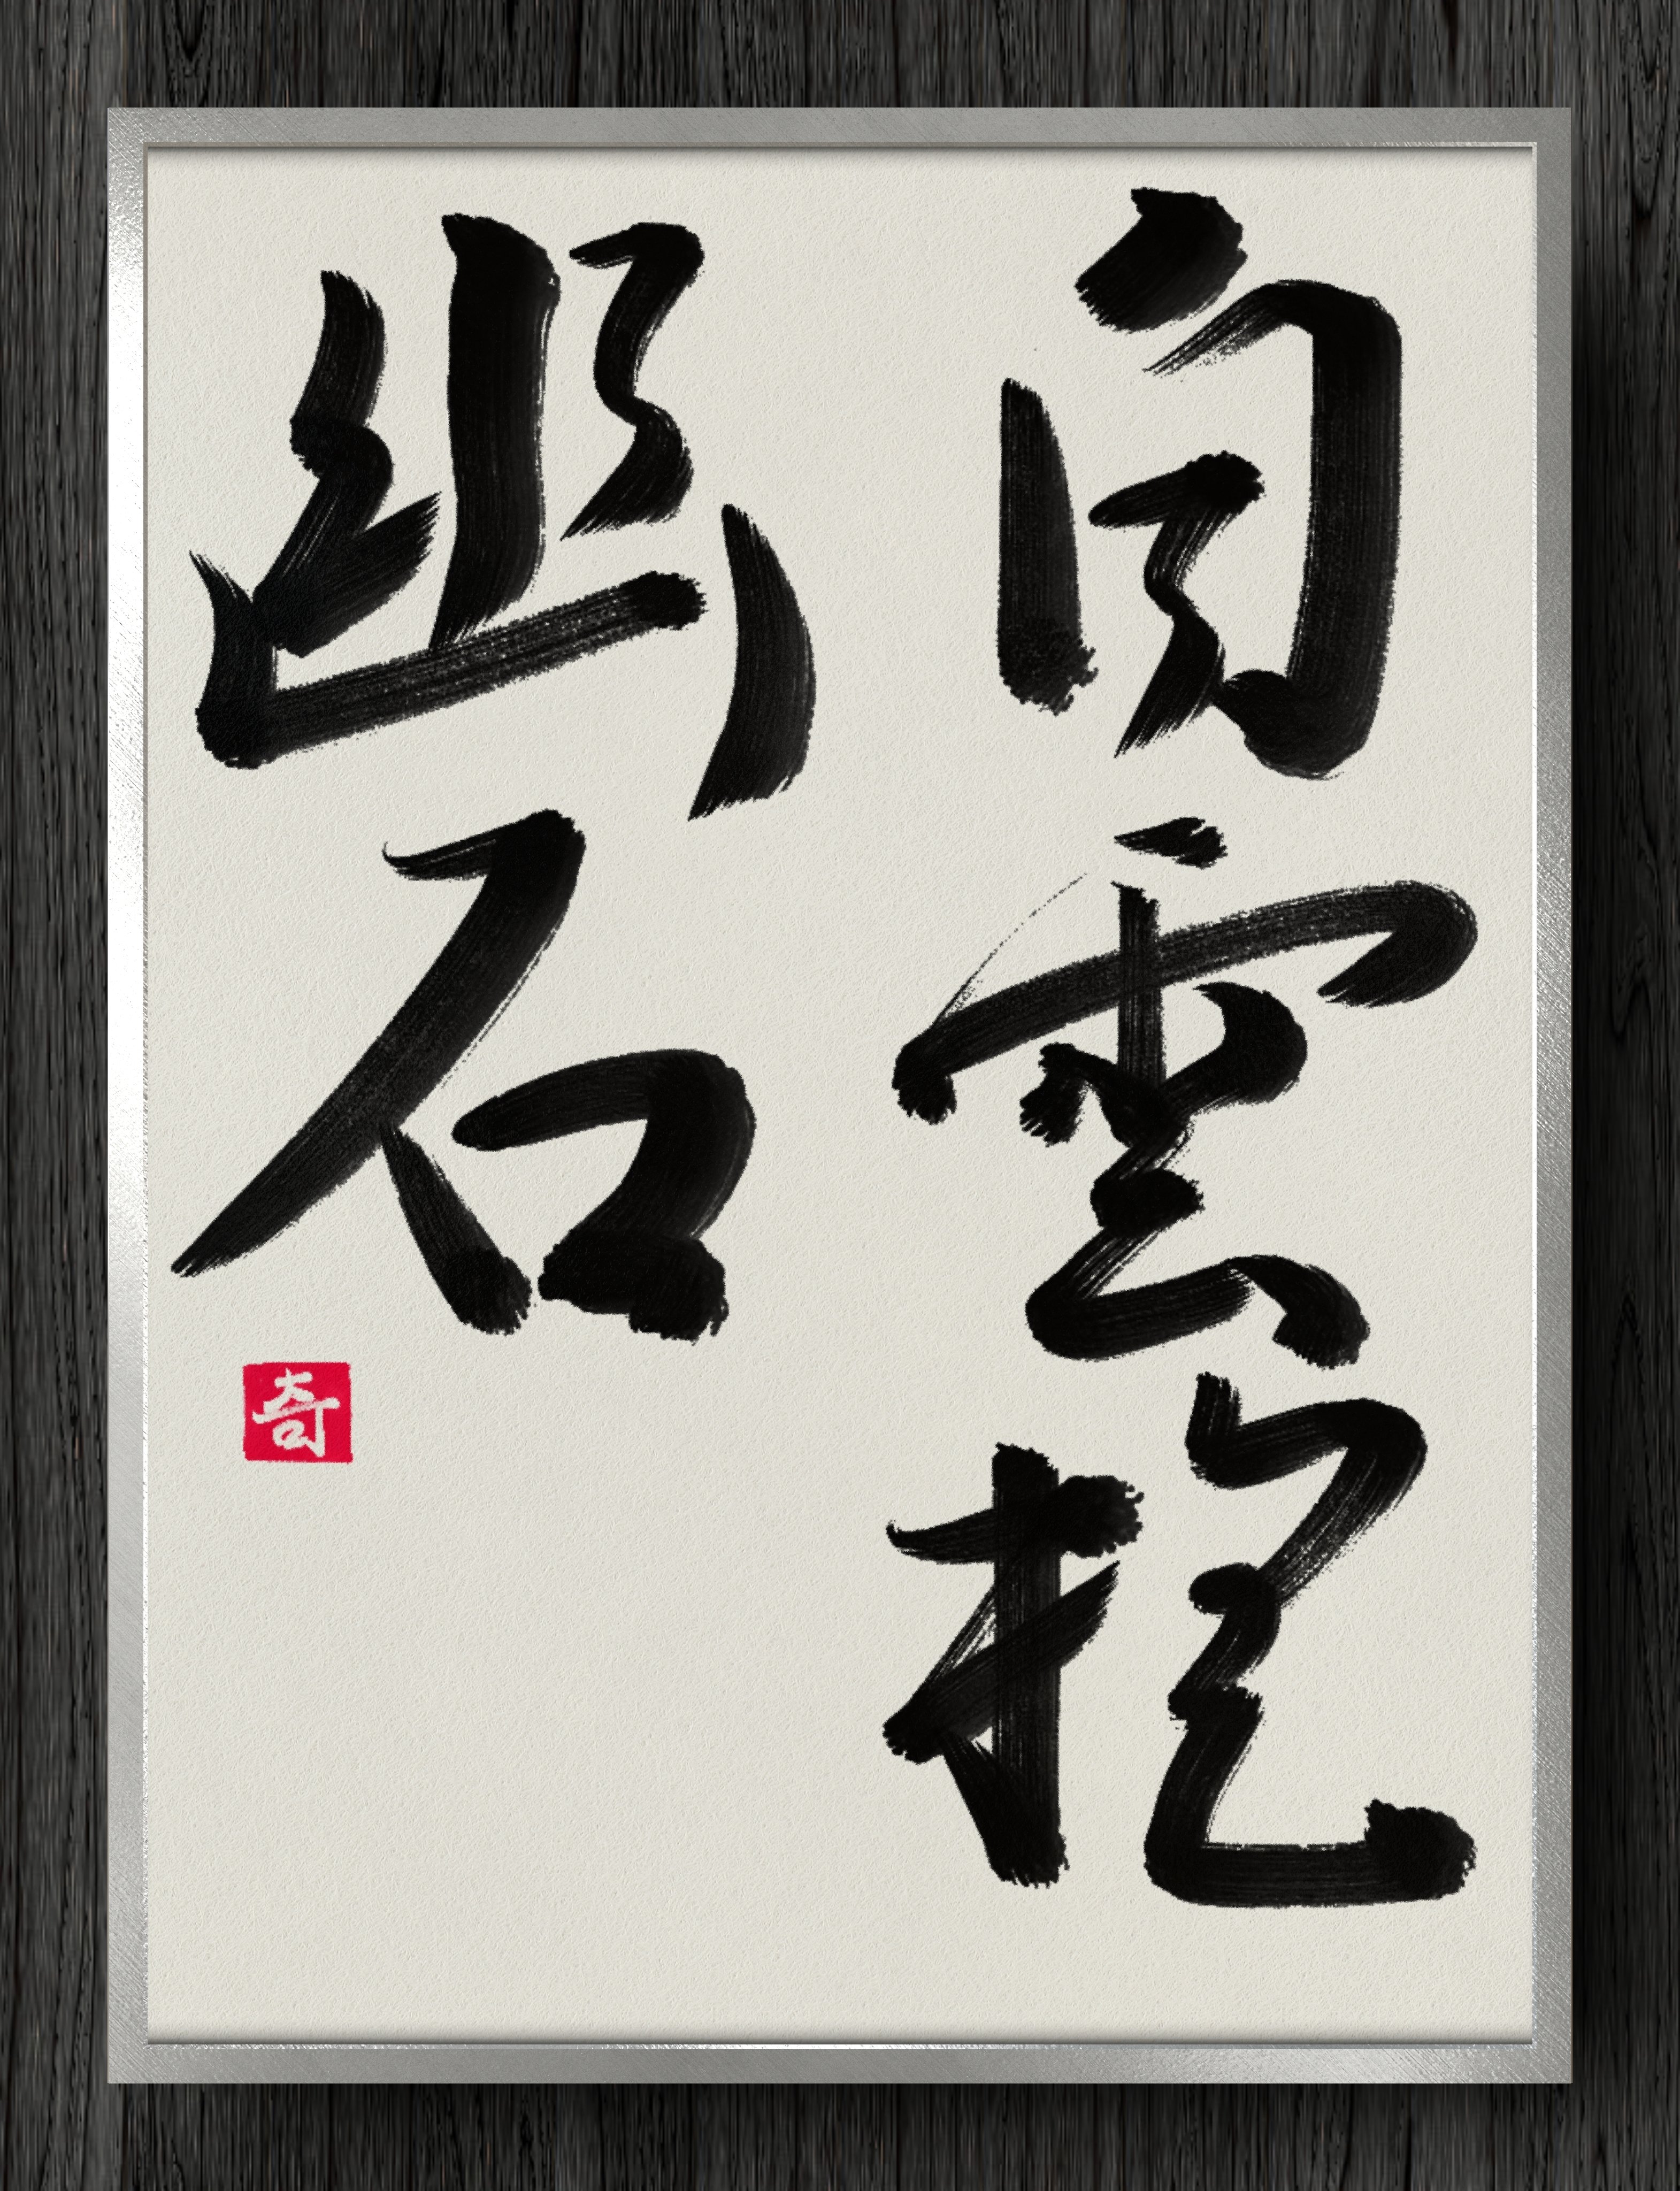 白雲抱
幽石
奇